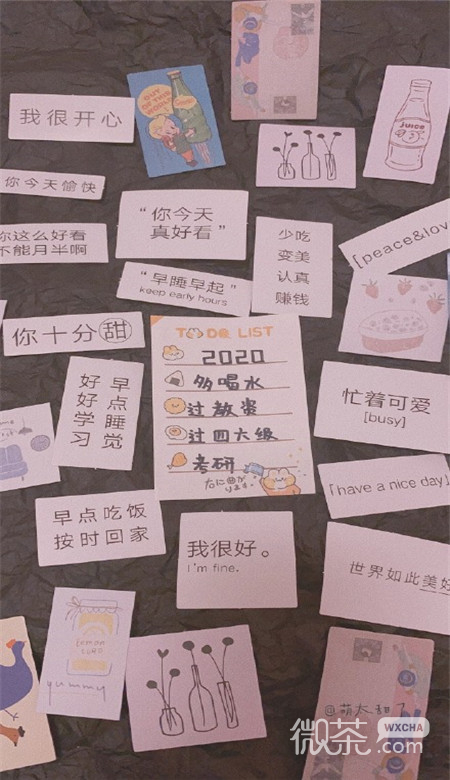 我很开心
OUT
OF THIS
WORLD!
JUICE
你今天愉快
"你今天
真好看"
你这么好看
不能月半啊
少吃
变美
认真
赚钱
[peace&lov
"早睡早起"
keep early hours
你十分甜
TO DO LIST
2020
多喝水
过教资
过四六级
考研
好好学习
早点睡觉
忙着可爱
[busy]
「have a nice day」
早点吃饭
按时回家
我很好。
I'm fine.
世界如此美好
LEMON
yummy
@萌太甜了
微茶
WXCHA
.com